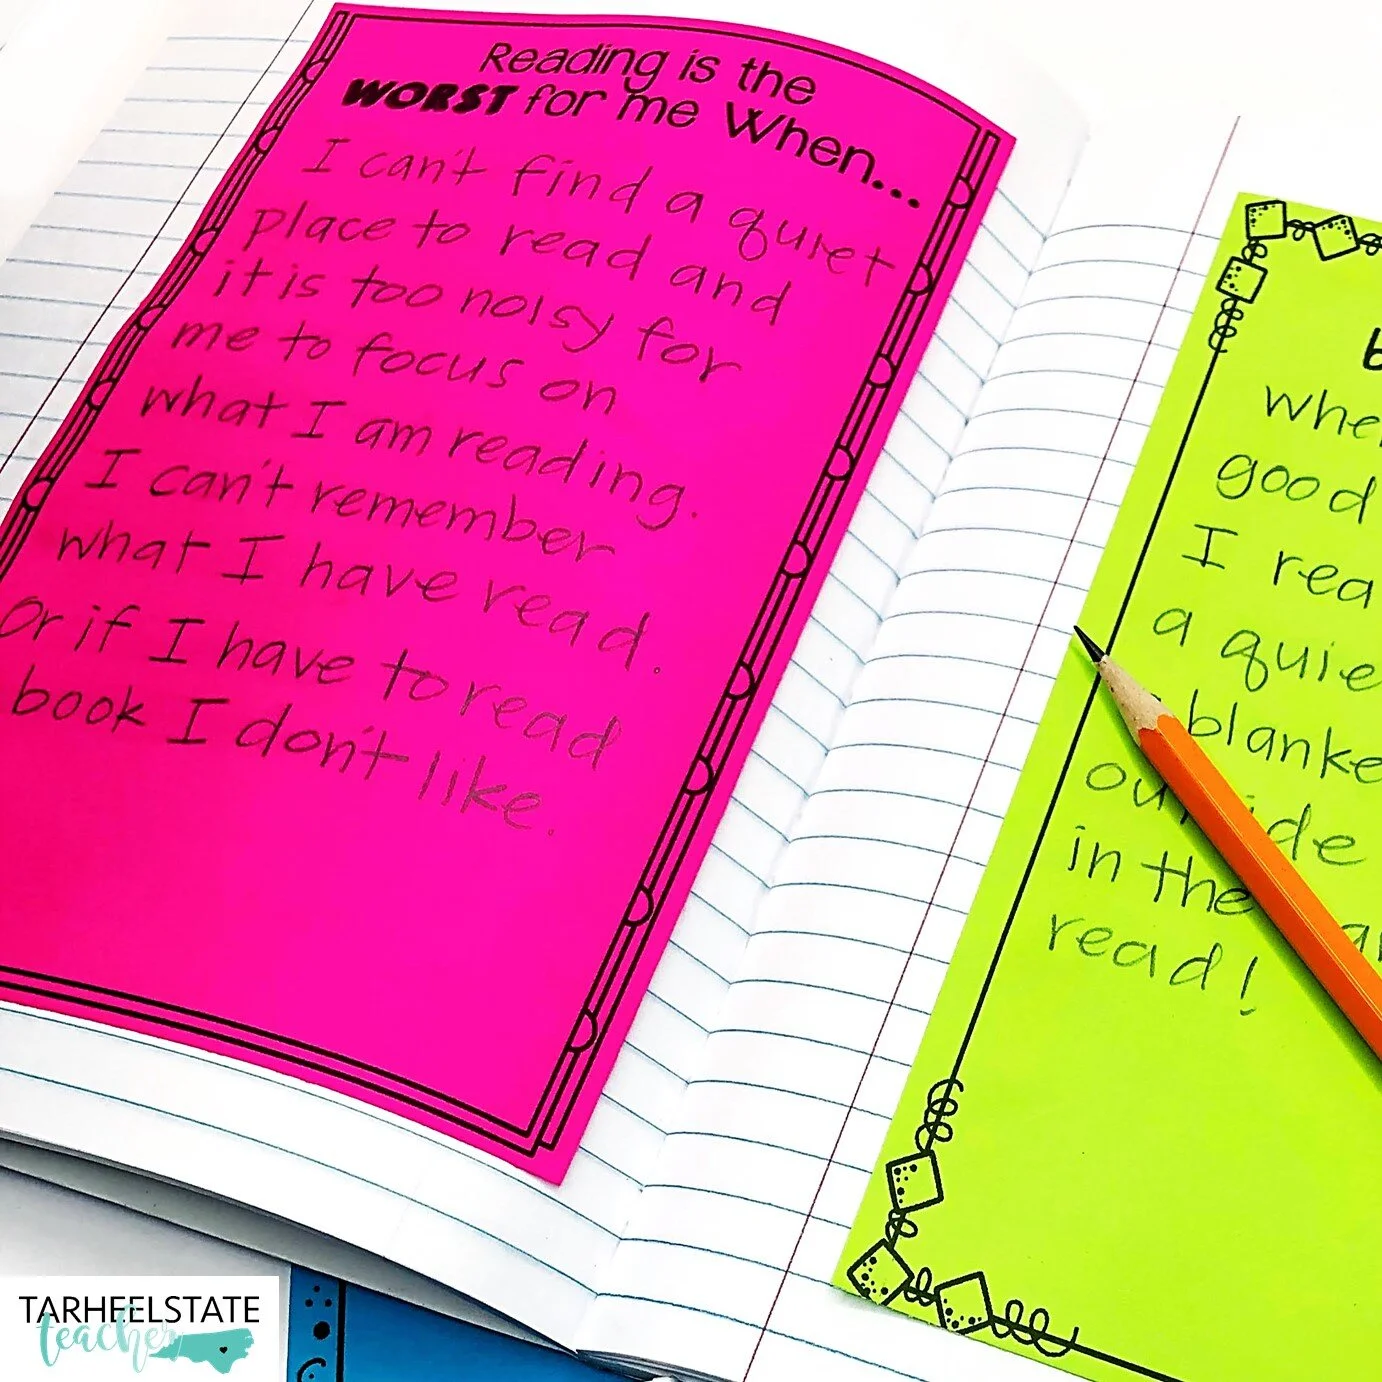 Reading is the
WORST for me When...
I can't find a quiet
place to read and
it is too noisy for
me to focus on
what I am reading.
I can't remember
what I have read.
Or if I have to read
book I don't like.
good
I
a
in the
read!
TARHEELSTATE
teacher